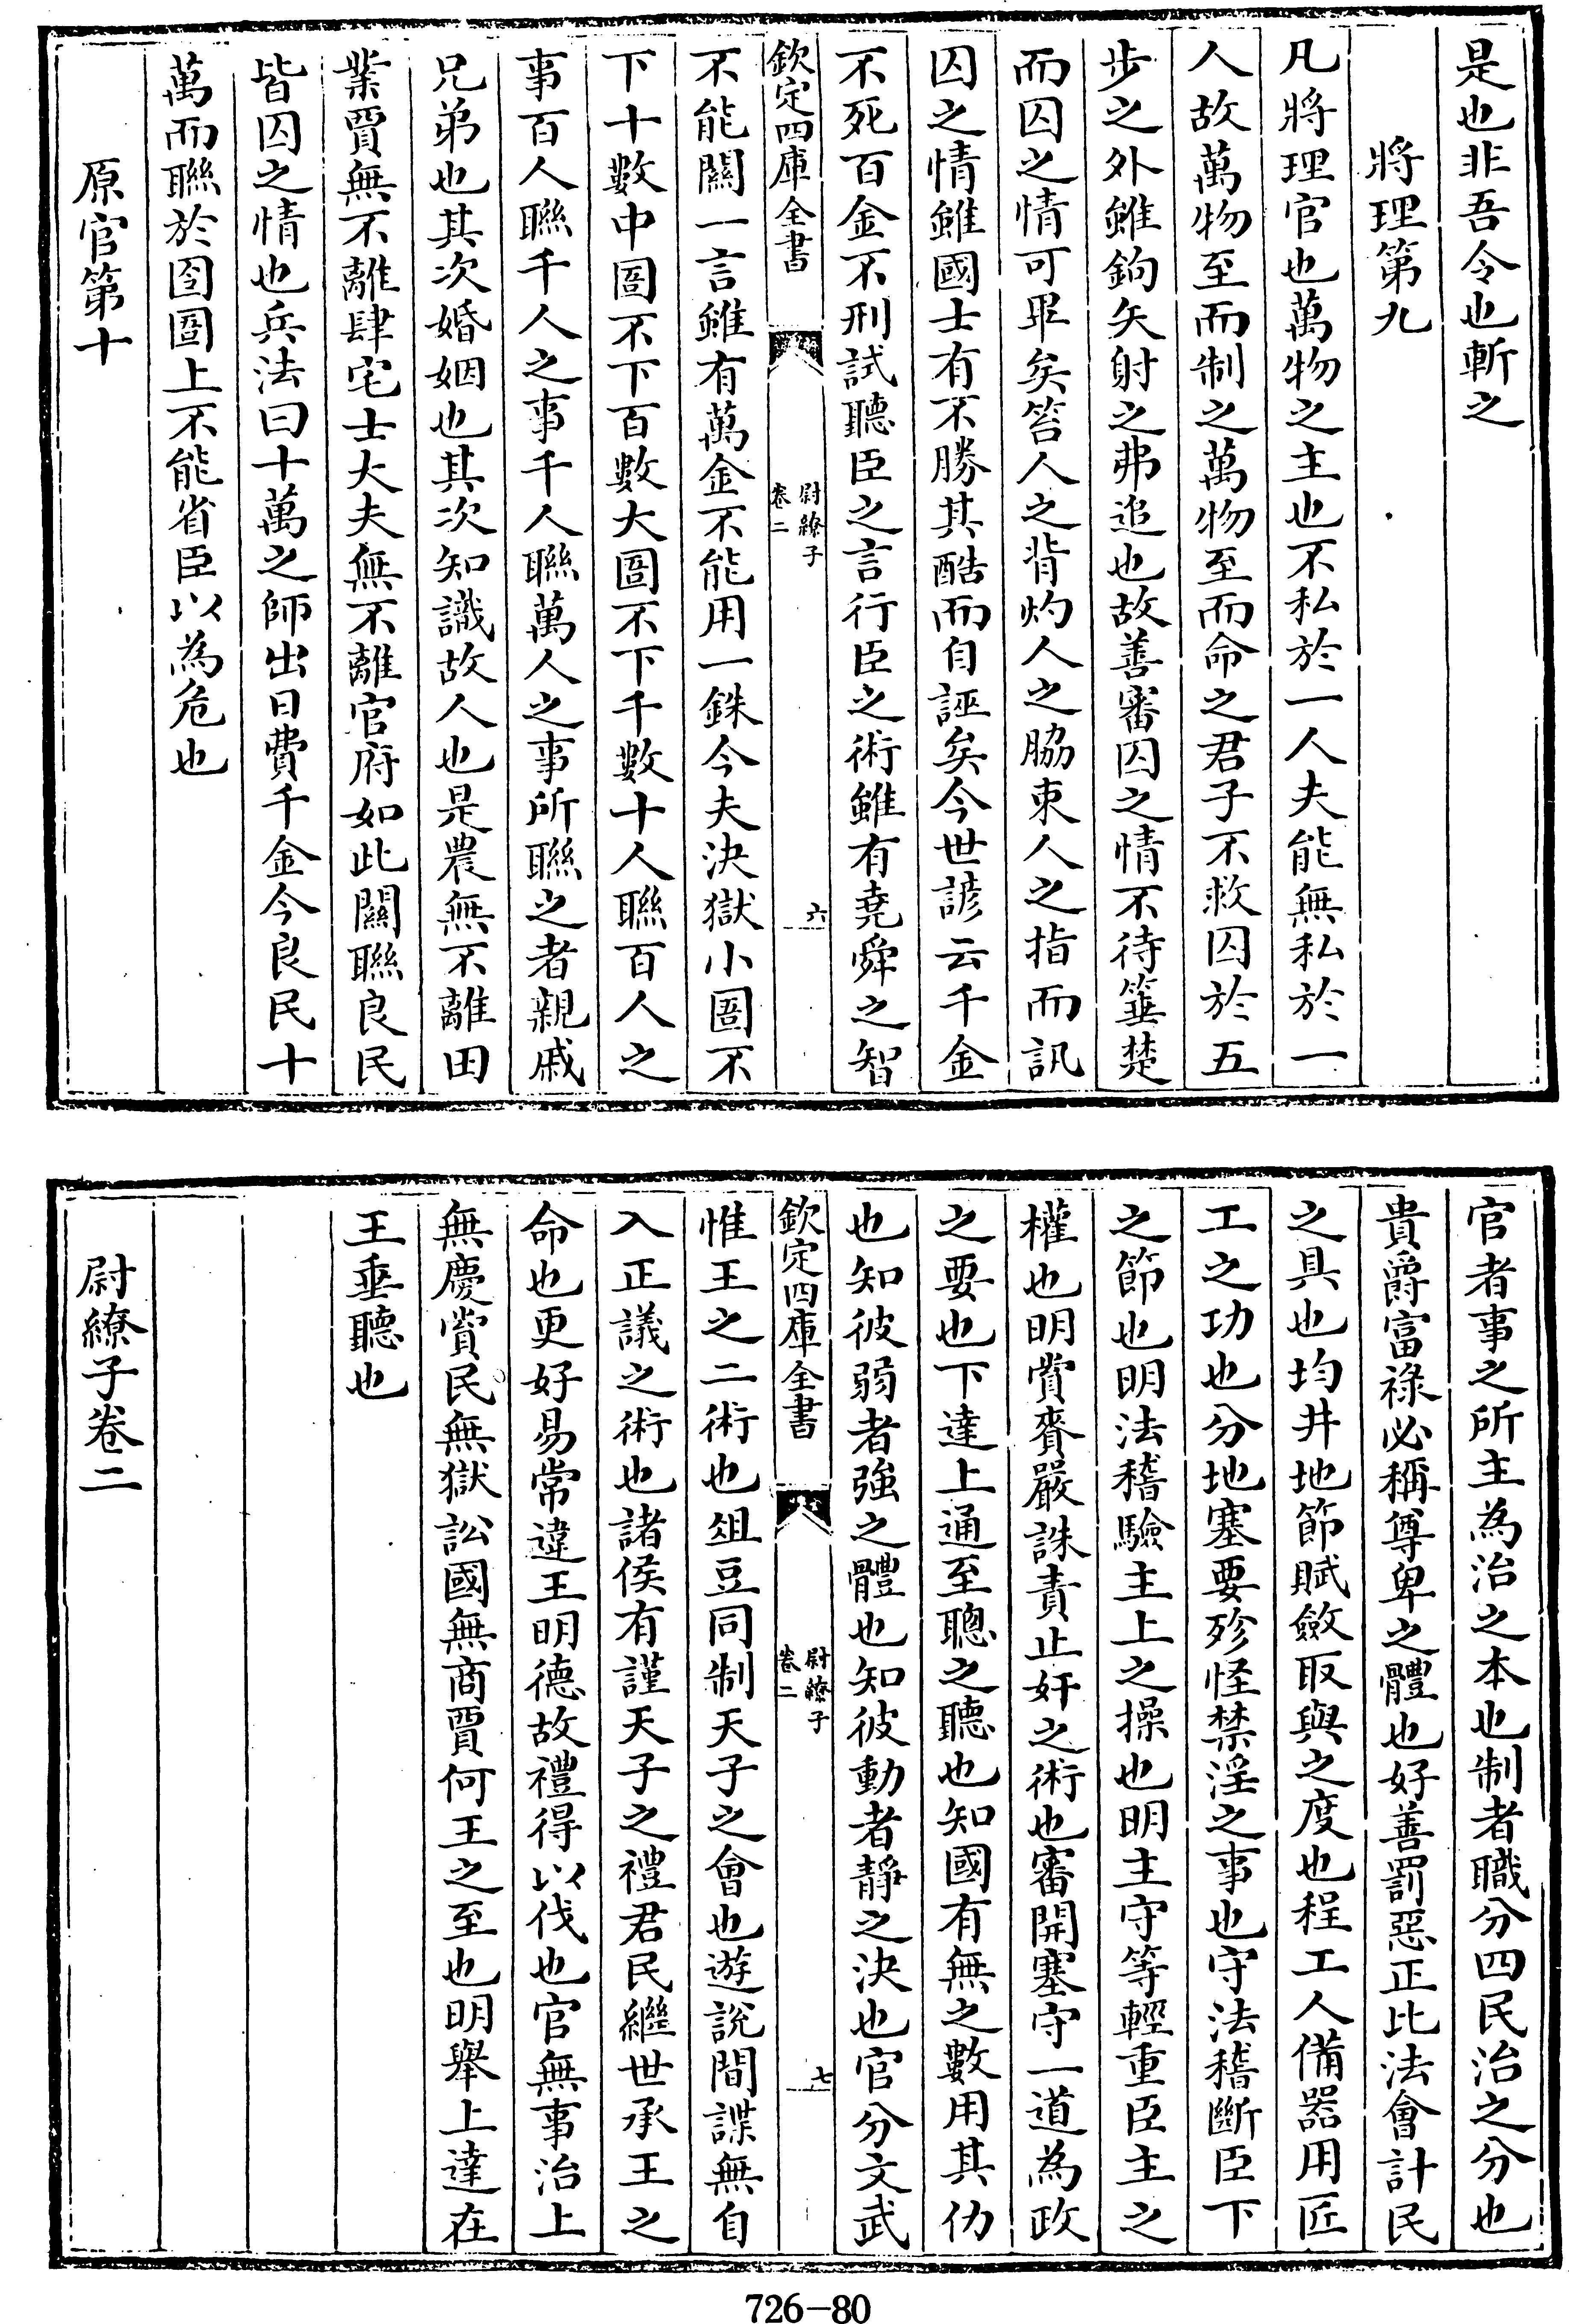 是也非吾令也斬之
將理第九
凡將理官也萬物之主也不私於一人夫能無私於一
人故萬物至而制之萬物至而命之君子不救囚於五
步之外雖鉤矢射之弗追也故善審囚之情不待箠楚
而囚之情可畢矣笞人之背灼人之脇束人之指而訊
囚之情雖國士有不勝其酷而自誣矣今世諺云千金
不死百金不刑試聽臣之言行臣之術雖有堯舜之智
欽定四庫全書
尉繚子
卷二
六
不能關一言雖有萬金不能用一銖今夫決獄小圄不
下十數中圄不下百數大圄不下千數十人聯百人之
事百人聯千人之事千人聯萬人之事所聯之者親戚
兄弟也其次婚姻也其次知識故人也是農無不離田
業賈無不離肆宅士大夫無不離官府如此關聯良民
皆囚之情也兵法曰十萬之師出日費千金今良民十
萬而聯於囹圄上不能省臣以為危也
原官第十
官者事之所主為治之本也制者職分四民治之分也
貴爵富祿必稱尊卑之體也好善罰惡正比法會計民
之具也均井地節賦斂取與之度也程工人備器用匠
工之功也分地塞要殄怪禁淫之事也守法稽斷臣下
之節也明法稽驗主上之操也明主守等輕重臣主之
權也明賞賚嚴誅責止奸之術也審開塞守一道為政
之要也下達上通至聰之聽也知國有無之數用其仂
也知彼弱者強之體也知彼動者靜之決也官分文武
欽定四庫全書
尉繚子
卷二
七
惟王之二術也俎豆同制天子之會也遊說間諜無自
入正議之術也諸侯有謹天子之禮君民繼世承王之
命也更好易常違王明德故禮得以伐也官無事治上
無慶賞民無獄訟國無商賈何王之至也明舉上達在
王垂聽也
尉繚子卷二
726-80